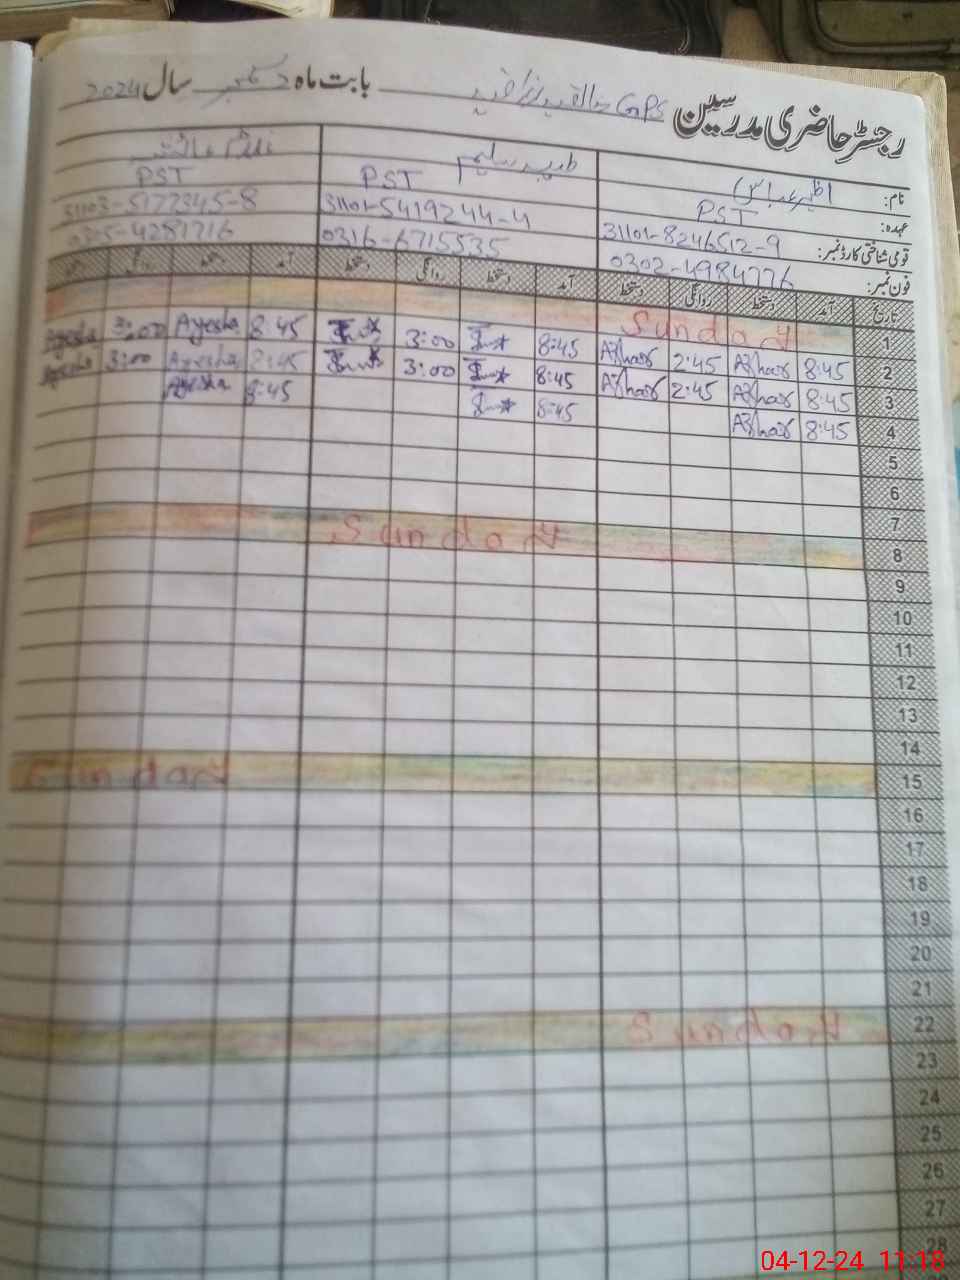 رجسٹر حاضری مدرسین GPS بابت ماہ دسمبر سال 2024
نام: اظہر عباس طیبہ سلیم
عہدہ: PST PST PST
قومی شناختی کارڈ نمبر: 31101-8246512-9 31101-5419244-4 31103-5177345-8
فون نمبر: 0302-4984776 0316-6715535
تاریخ آمد دستخط روانگی دستخط آمد دستخط روانگی دستخط آمد دستخط روانگی دستخط
1 Sunday
2 8:45 Azhar 2:45 Azhar 8:45 3:00 8:45 Ayesha 3:00 Ayesha
3 8:45 Azhar 2:45 Azhar 8:45 3:00 8:45 Ayesha 3:00 Ayesha
4 8:45 Azhar 8:45 8:45 Ayesha
5
6
7
8 Sunday
9
10
11
12
13
14
15 Sunday
16
17
18
19
20
21
22 Sunday
23
24
25
26
27
28
04-12-24 11:18